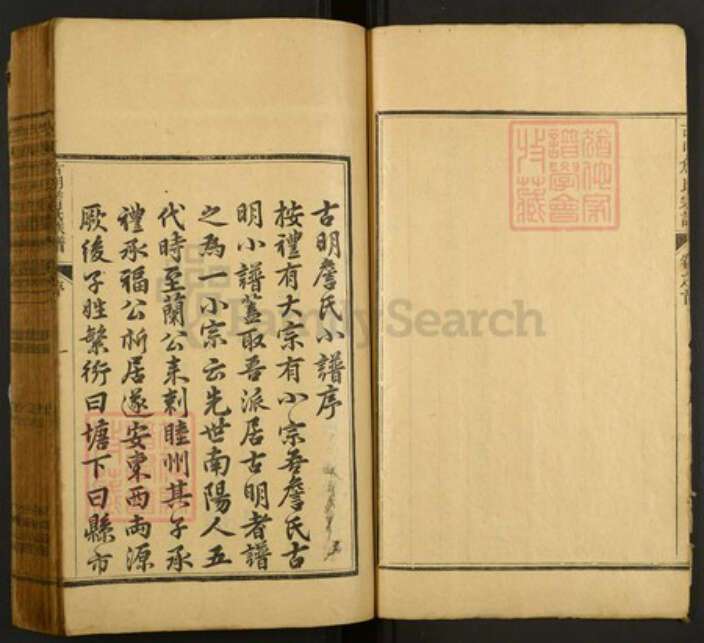 古明詹氏小譜序
按禮有大宗有小宗吾詹氏古
明小譜蓋取吾派居古明者譜
之為一小宗云先世南陽人五
代時至蘭公来刺睦州其子承
禮承福公析居遂安東西両源
厥後子姓繁衍曰塘下曰縣市
序
一
FamilySearch